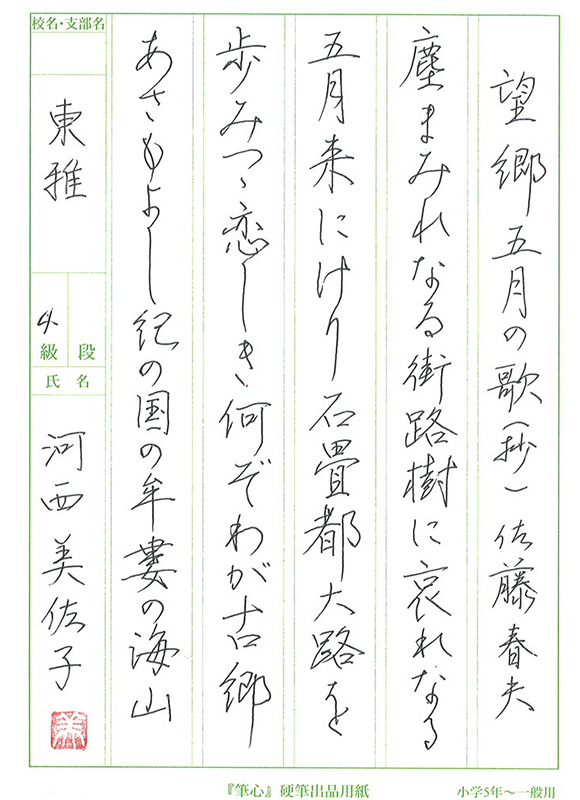 望郷五月の歌(抄) 佐藤春夫
塵まみれなる街路樹に哀れなる
五月来にけり石畳都大路を
歩みつゝ恋しき何ぞわが古郷
あさもよし紀の国の牟婁の海山
校名・支部名
東雅
段
4 級
氏名
河西美佐子
美
『筆心』硬筆出品用紙
小学5年〜一般用